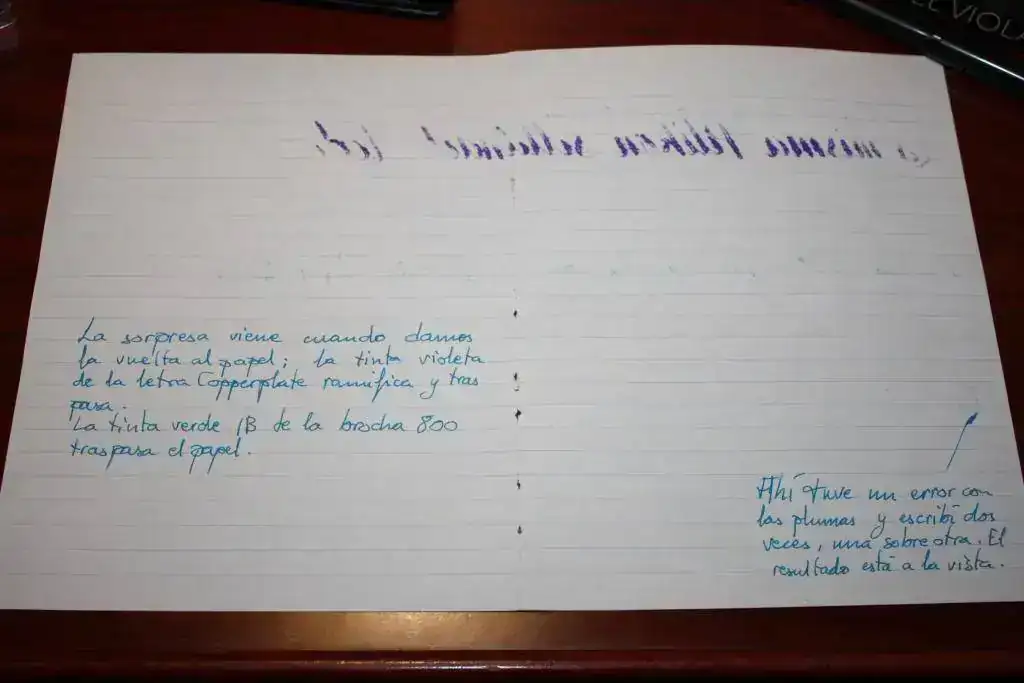 EL VIOLA
La misma Pelikan
La sorpresa viene cuando damos
la vuelta al papel; la tinta violeta
de la letra Copperplate ramifica y tras
pasa.
La tinta verde 1B de la brocha 800
traspasa el papel.
Ahí tuve un error con
las plumas y escribí dos
veces, una sobre otra. El
resultado está a la vista.